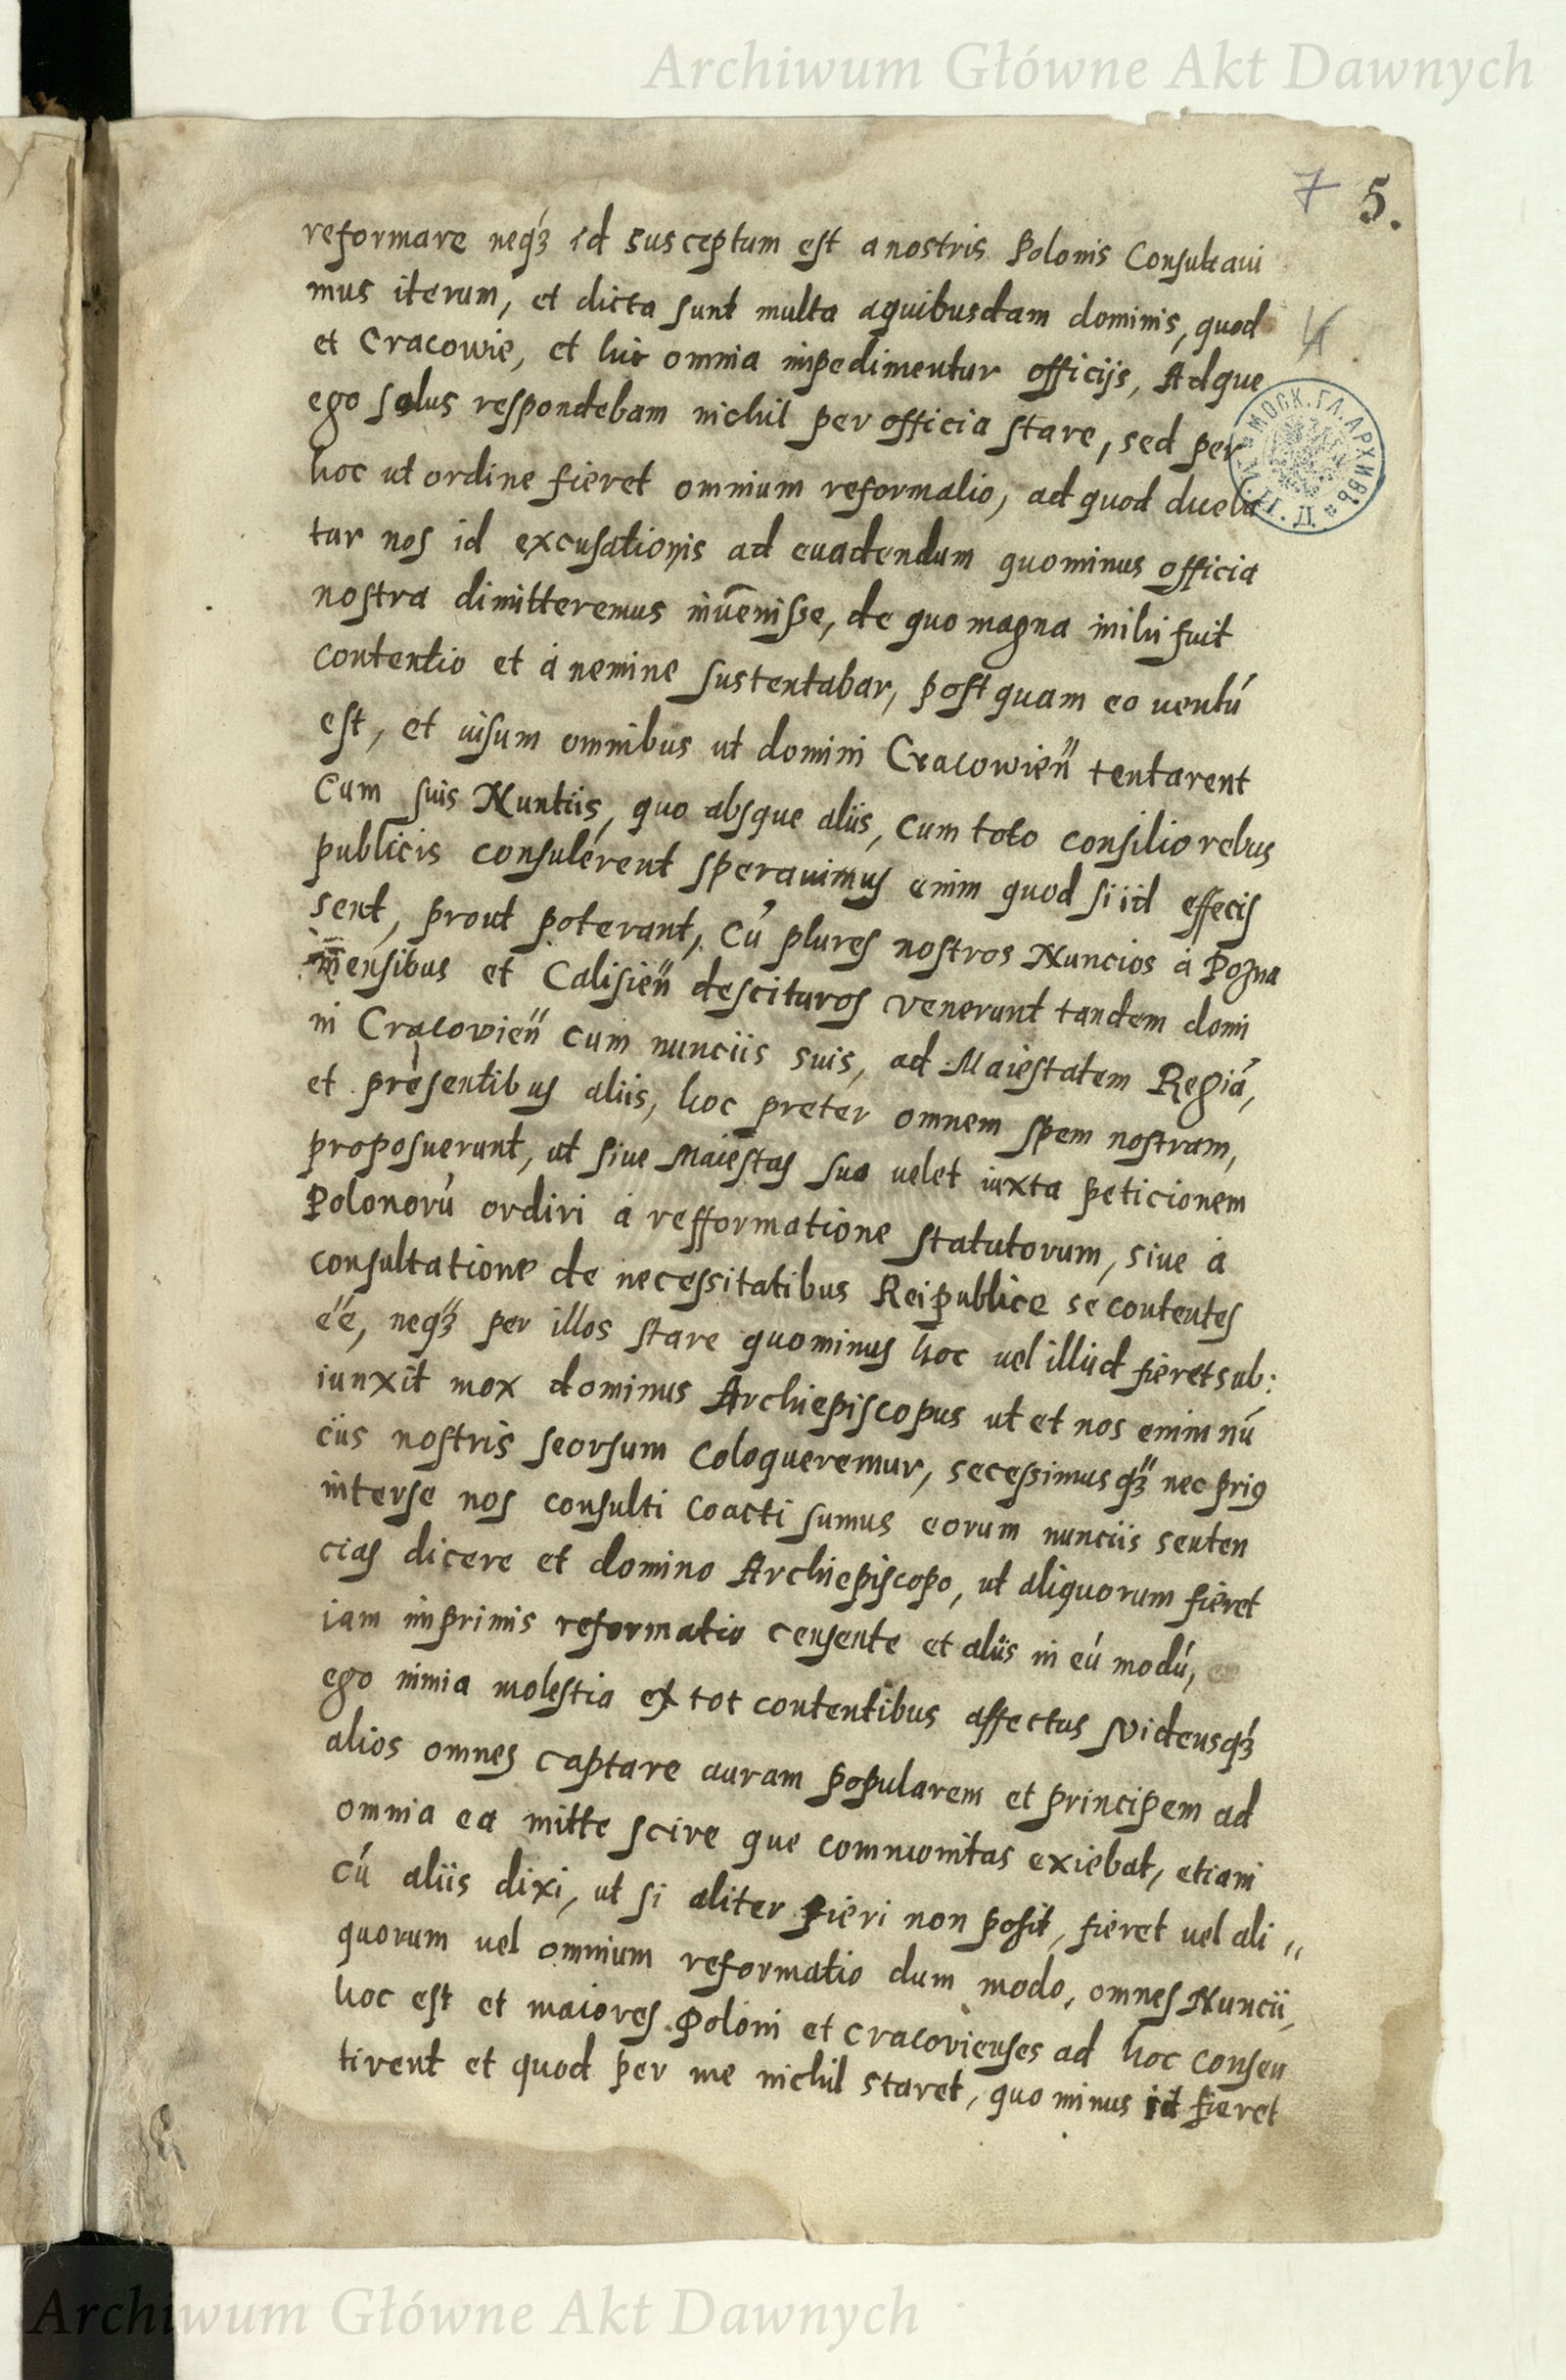 Archiwum Główne Akt Dawnych
7 5.
reformare neqȝ id susceptum est a nostris Polonis Consultaui
mus iterum, et dicta sunt multa aquibusdam dominis, quod
4
et Cracowie, et hic omnia impedimentur officijs, Adque
ego solus respondebam nichil per officia stare, sed per
МОСК. ГЛ. АРХИВЪ
hoc ut ordine fieret omnium reformatio, ad quod duceba
tur nos id excusationis ad euadendum quominus officia
nostra dimitteremus inuenisse, de quo magna mihi fuit
contentio et à nemine sustentabar, post quam eo uentú
est, et uisum omnibus ut domini Cracowień tentarent
Cum suis Nuntiis, quo absque aliis, cum toto consilio rebus
publicis consulerent sperauimus enim quod si id effecis
sent, prout poterant, Cú plures nostros Nuncios à Pozna
niensibus et Calisień descituros venerunt tandem domi
ni Cracovień cum nunciis suis, ad Maiestatem Regiá,
et presentibus aliis, hoc preter omnem spem nostram,
proposuerunt, ut siue Maiestas sua uelet iuxta peticionem
Polonorú ordiri à refformatione statutorum, siue à
consultatione de necessitatibus Reipublice se contentes
éé, neqȝ per illos stare quominus hoc uel illud fieret sub:
iunxit mox dominus Archiepiscopus ut et nos enim nú
ciis nostris seorsum Coloqueremur, secessimusqȝ nec prius
interse nos consulti coacti sumus eorum nunciis senten
cias dicere et domino Archiepiscopo, ut aliquorum fieret
iam imprimis reformatio censente et aliis in eú modú,
ego nimia molestia ex tot contentibus affectus Vidensqȝ
alios omnes captare auram popularem et principem ad
omnia ea mitte scire que communitas exiebat, etiam
cú aliis dixi, ut si aliter fieri non posit, fieret uel ali〃
quorum uel omnium reformatio dum modo, omnes Nuncii,
hoc est et maiores Poloni et Cracovienses ad hoc consen
tirent et quod per me nichil staret, quo minus id fieret
Archiwum Główne Akt Dawnych